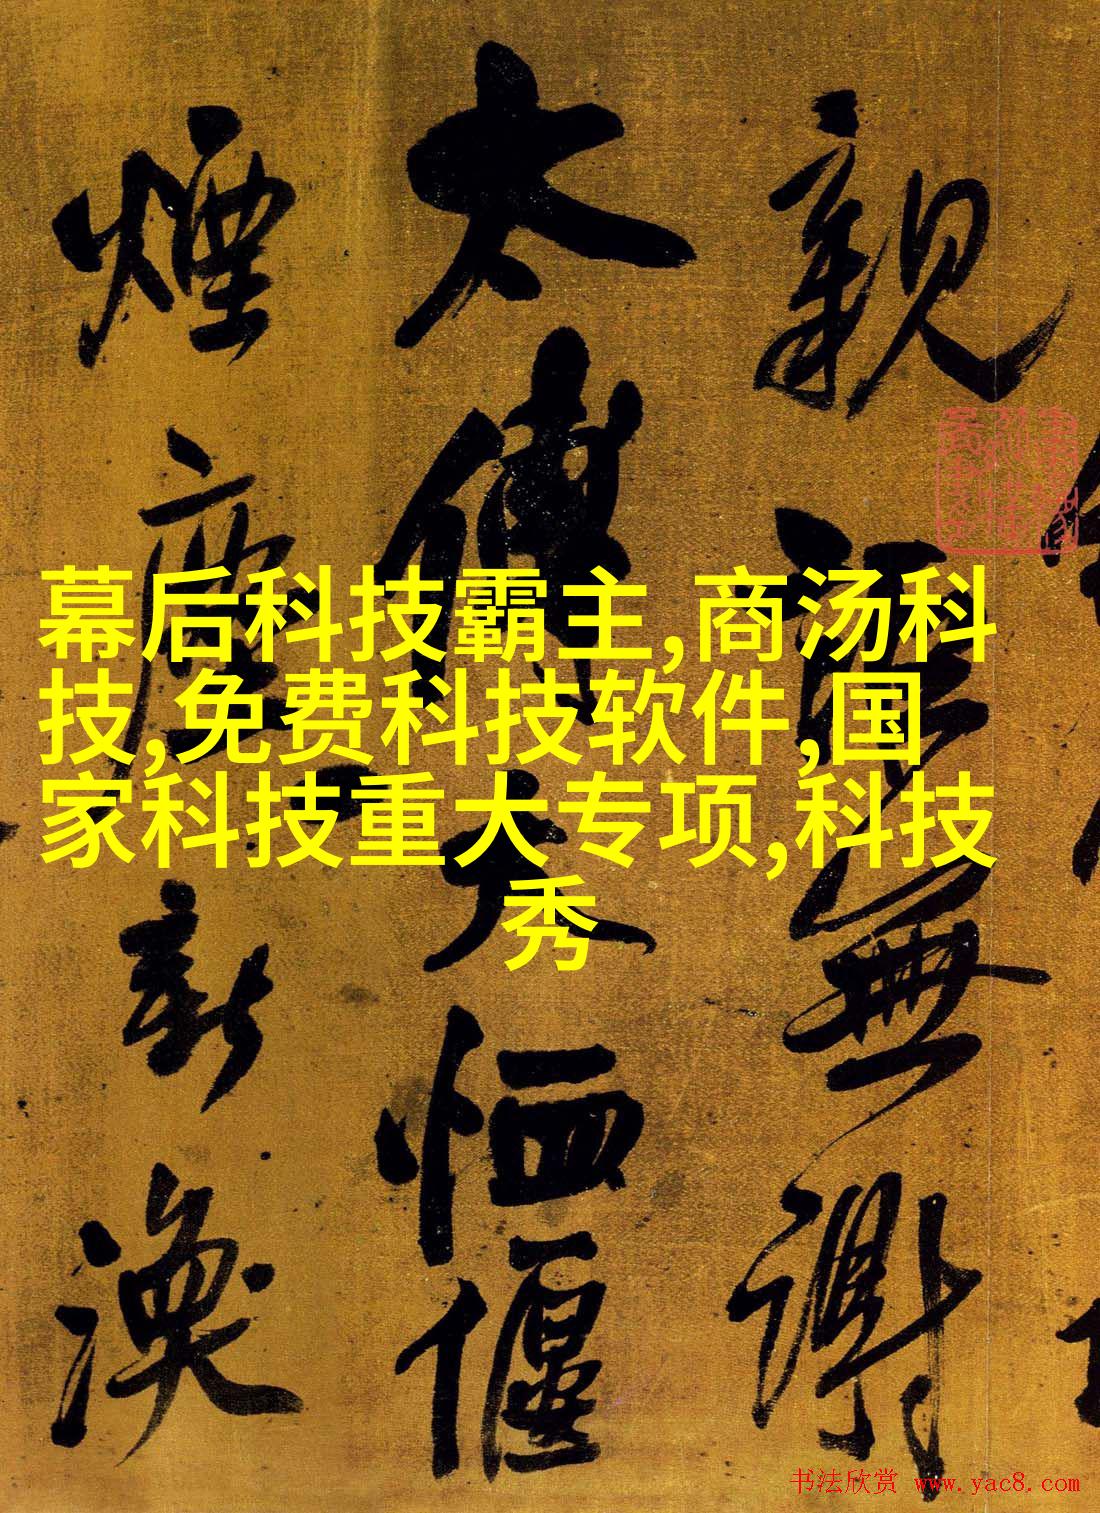 幕后科技霸主,商汤科
技,免费科技软件,国
家科技重大专项,科技
秀
親無謝
太傅大恤偃
煙塵新渙
书法欣赏 www.yac8.com